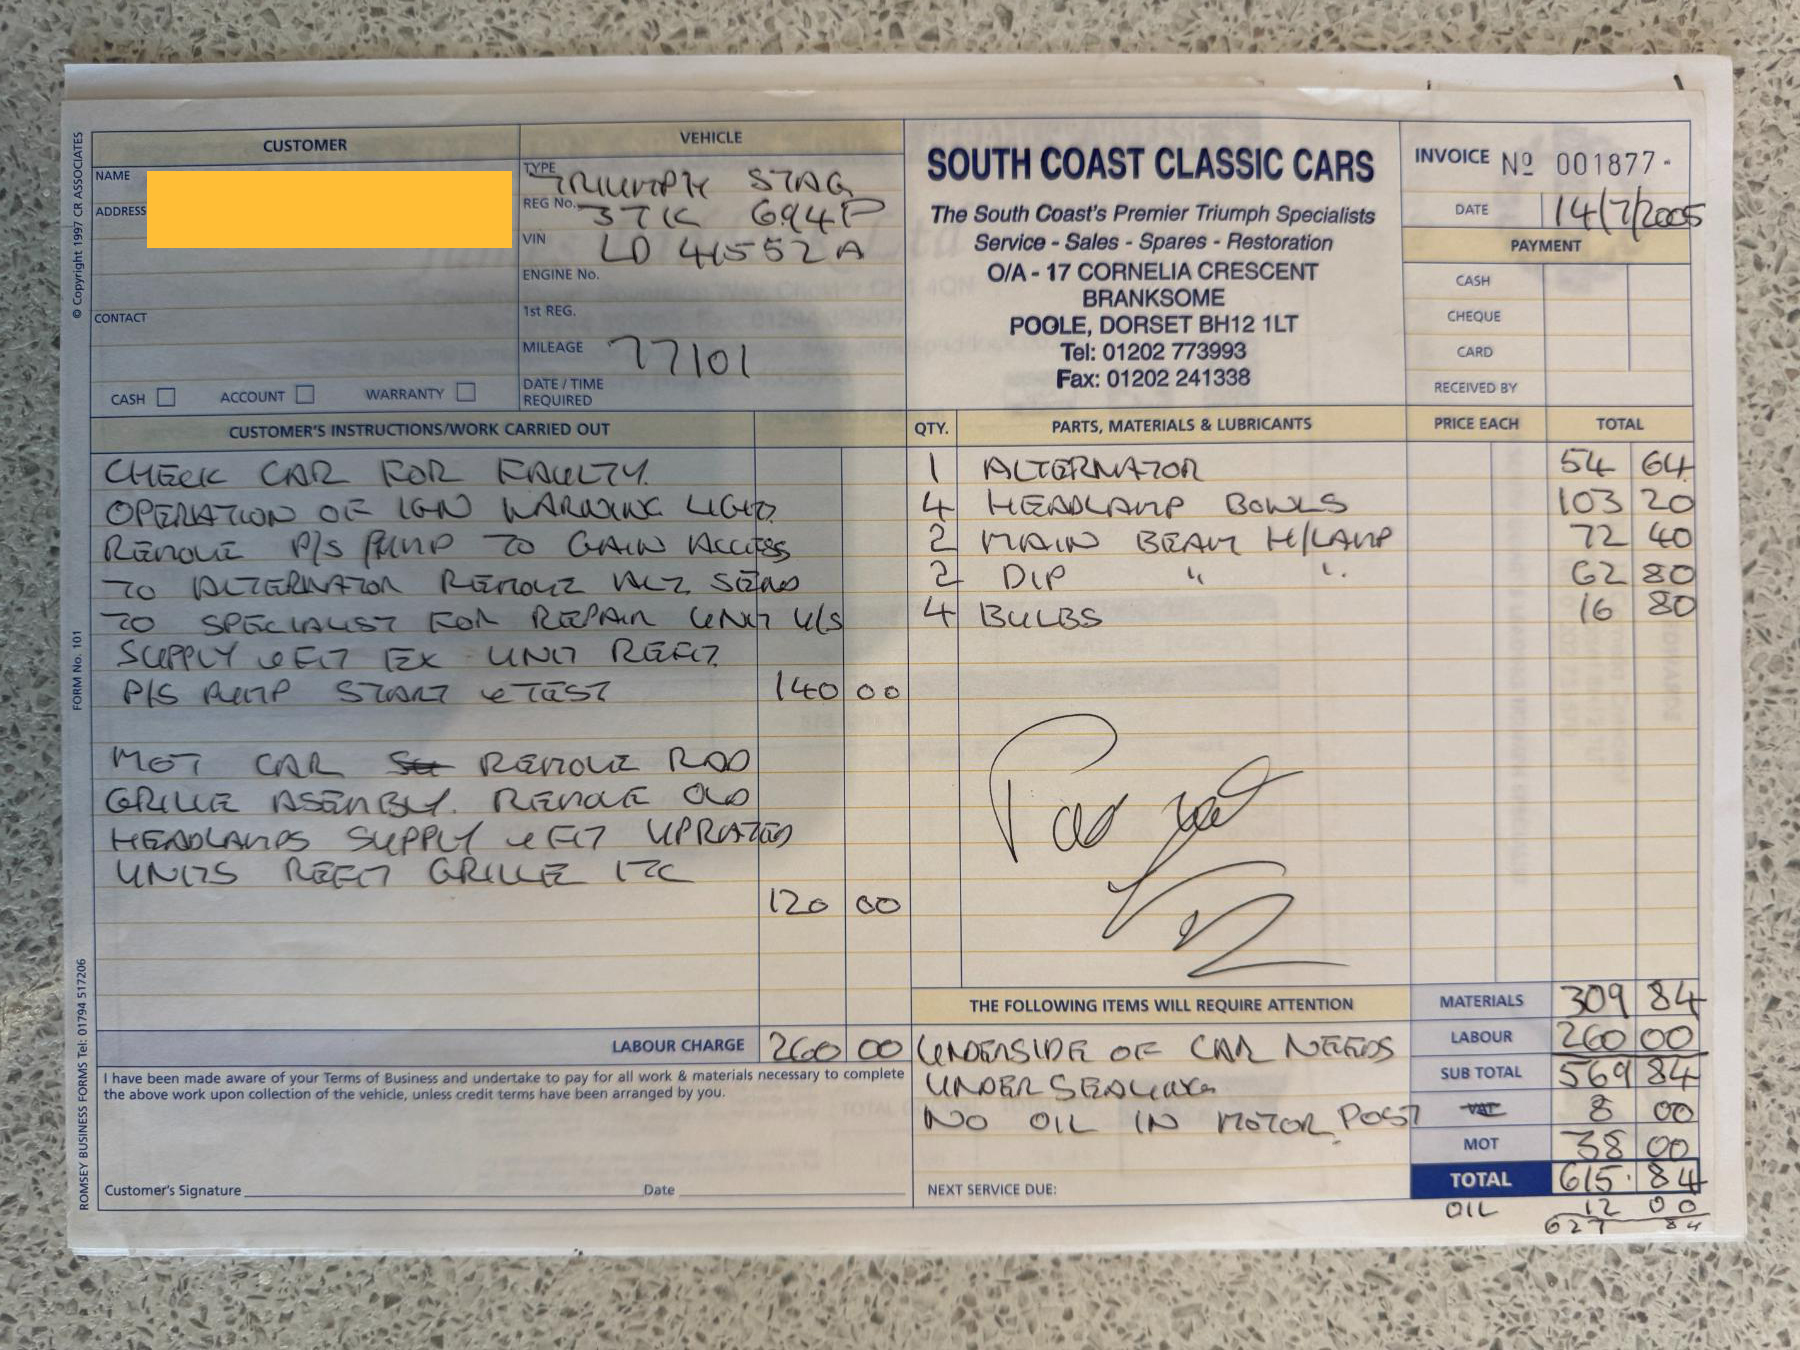 CUSTOMER
NAME
ADDRESS
CONTACT
CASH ACCOUNT WARRANTY
VEHICLE
TYPE TRIUMPH STAG
REG No. 694P
VIN LD 41552 A
ENGINE No.
1st REG.
MILEAGE 77101
DATE / TIME
REQUIRED
SOUTH COAST CLASSIC CARS
The South Coast's Premier Triumph Specialists
Service - Sales - Spares - Restoration
O/A - 17 CORNELIA CRESCENT
BRANKSOME
POOLE, DORSET BH12 1LT
Tel: 01202 773993
Fax: 01202 241338
INVOICE No 001877
DATE 14/7/2005
PAYMENT
CASH
CHEQUE
CARD
RECEIVED BY
CUSTOMER'S INSTRUCTIONS/WORK CARRIED OUT
CHECK CAR FOR FAULTY
OPERATION OF IGN WARNING LIGHT
REMOVE P/S PUMP TO GAIN ACCESS
TO ALTERNATOR REMOVE ALT SEND
TO SPECIALIST FOR REPAIR UNIT U/S
SUPPLY & FIT EX UNIT REFIT
P/S PUMP START & TEST 140 00
MOT CAR REMOVE RAD
GRILLE ASEMBLY. REMOVE OLD
HEADLAMPS SUPPLY & FIT UPRATED
UNITS REFIT GRILLE ETC
120 00
LABOUR CHARGE 260 00
I have been made aware of your Terms of Business and undertake to pay for all work & materials necessary to complete
the above work upon collection of the vehicle, unless credit terms have been arranged by you.
Customer's Signature Date
QTY. PARTS, MATERIALS & LUBRICANTS PRICE EACH TOTAL
1 ALTERNATOR 54 64
4 HEADLAMP BOWLS 103 20
2 MAIN BEAM H/LAMP 72 40
2 DIP " " 62 80
4 BULBS 16 80
THE FOLLOWING ITEMS WILL REQUIRE ATTENTION
UNDERSIDE OF CAR NEEDS
UNDERSEALING
NO OIL IN MOTOR POST
NEXT SERVICE DUE:
MATERIALS 309 84
LABOUR 260 00
SUB TOTAL 569 84
VAT 8 00
MOT 38 00
TOTAL 615.84
OIL 12 00
627 84
© Copyright 1997 CR ASSOCIATES
FORM No. 101
ROMSEY BUSINESS FORMS Tel: 01794 517206